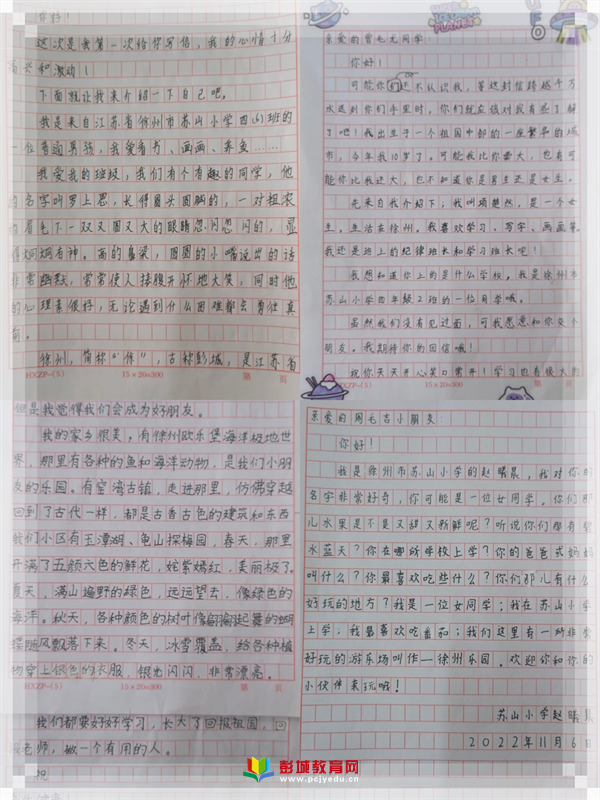 你好!
这次是我第一次给你写信,我的心情十分
和激动!
下面就让我来介绍一下自己吧。
我是来自江苏省徐州市苏山小学四(6)班的
一位普通男孩,我爱看书、画画、养鱼……
我爱我的班级,我们有个有趣的同学,他
的名字叫罗上思,长得圆头圆脑的,一对粗浓
的眉毛下一双又圆又大的眼睛忽闪忽闪的,显
得炯炯有神。高的鼻梁,圆圆的小嘴说出的话
非常幽默,常常使人捧腹开怀地大笑,同时他
的心理素很好,无论遇到什么困难都会勇往直
前。
徐州,简称“佧”,古称彭城,是江苏省
HXZP-(5) 15×20=300 第 页
亲爱的曾毛尤同学:
你好!
可能你们还不认识我,等这封信跨越千万
水送到你们手里时,你们就应该对我有些了解
了吧!我出生于一个祖国中部的一座繁华的城
市,今年我10岁了。可能我比你最大,也有可
能你比我还大,也不知道你是男生还是女生。
先来自我介绍下;我叫项楚然,是一个女
生,生活在徐州。我喜欢学习、写字、画画等。
我还是班上的纪律班长和学习班长吧!
我想知道你上的是什么学校。我是徐州市
苏山小学四年级2班的一位同学哦。
虽然我们没有见过面,可我愿意和你交个
朋友。我期待你的回信哦!
祝你天天开心笑口常开!学习也有很大的
HXZP-(5) 15×20=300 第 页
但是我觉得我们会成为好朋友。
我的家乡很美,有徐州欧乐堡海洋极地世
界,那里有各种的鱼和海洋动物,是我们小朋
友的乐园。有窑湾古镇,走进那里,仿佛穿越
回到了古代一样,都是古香古色的建筑和东西
我们小区有王漳湖、龟山探梅园,春天,那里
开满了五颜六色的鲜花,姹紫嫣红,美丽极了。
夏天,满山遍野的绿色,远远望去,像绿色的
海洋。秋天,各种颜色的树叶像翩翩起舞的蝴
蝶随风飘落下来。冬天,冰雪覆盖,给各种植
物穿上银色的衣服,银光闪闪,非常漂亮。
HXZP-(5) 15×20=300 第 页
我们都要好好学习,长大了回报祖国,回
报老师,做一个有用的人。
祝
亲爱的周毛吉小朋友:
你好!
我是徐州市苏山小学的赵曦晨,我对你的
名字非常好奇,你可能是一位女同学,你们那
儿水果是不是又甜又新鲜呢?听说你们那有碧
水蓝天?你在哪所学校上学?你的爸爸或妈妈
叫什么?你最喜欢吃些什么?你们那儿有什么
好玩的地方?我是一位女同学;我在苏山小学
上学;我最喜欢吃番茄;我们这里有一所非常
好玩的游乐场叫作—徐州乐园。欢迎你和你的
小伙伴来玩哦!
苏山小学赵曦晨
2022年11月6日
彭城教育网
www.pcjyedu.cn